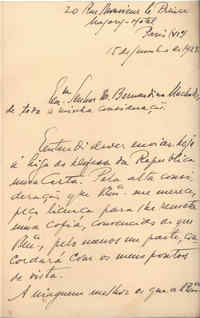 20 Rue Monsieur le Prince
Majory-Hotel
Paris (VIe)
15 de Junho de 192
Exmo Senhor Dr. Bernardino Machado,
de toda a minha consideração
Entendi dever enviar hoje
á Liga de defesa da Republica
uma Carta. Pela alta consi
deração que V. Exa. me merece,
peço licença para lhe remeter
uma copia, convencido de que
V. Exa., pelo menos em parte, con
cordará com os meus pontos
de vista.
A ninguem melhor do que a V. Exa